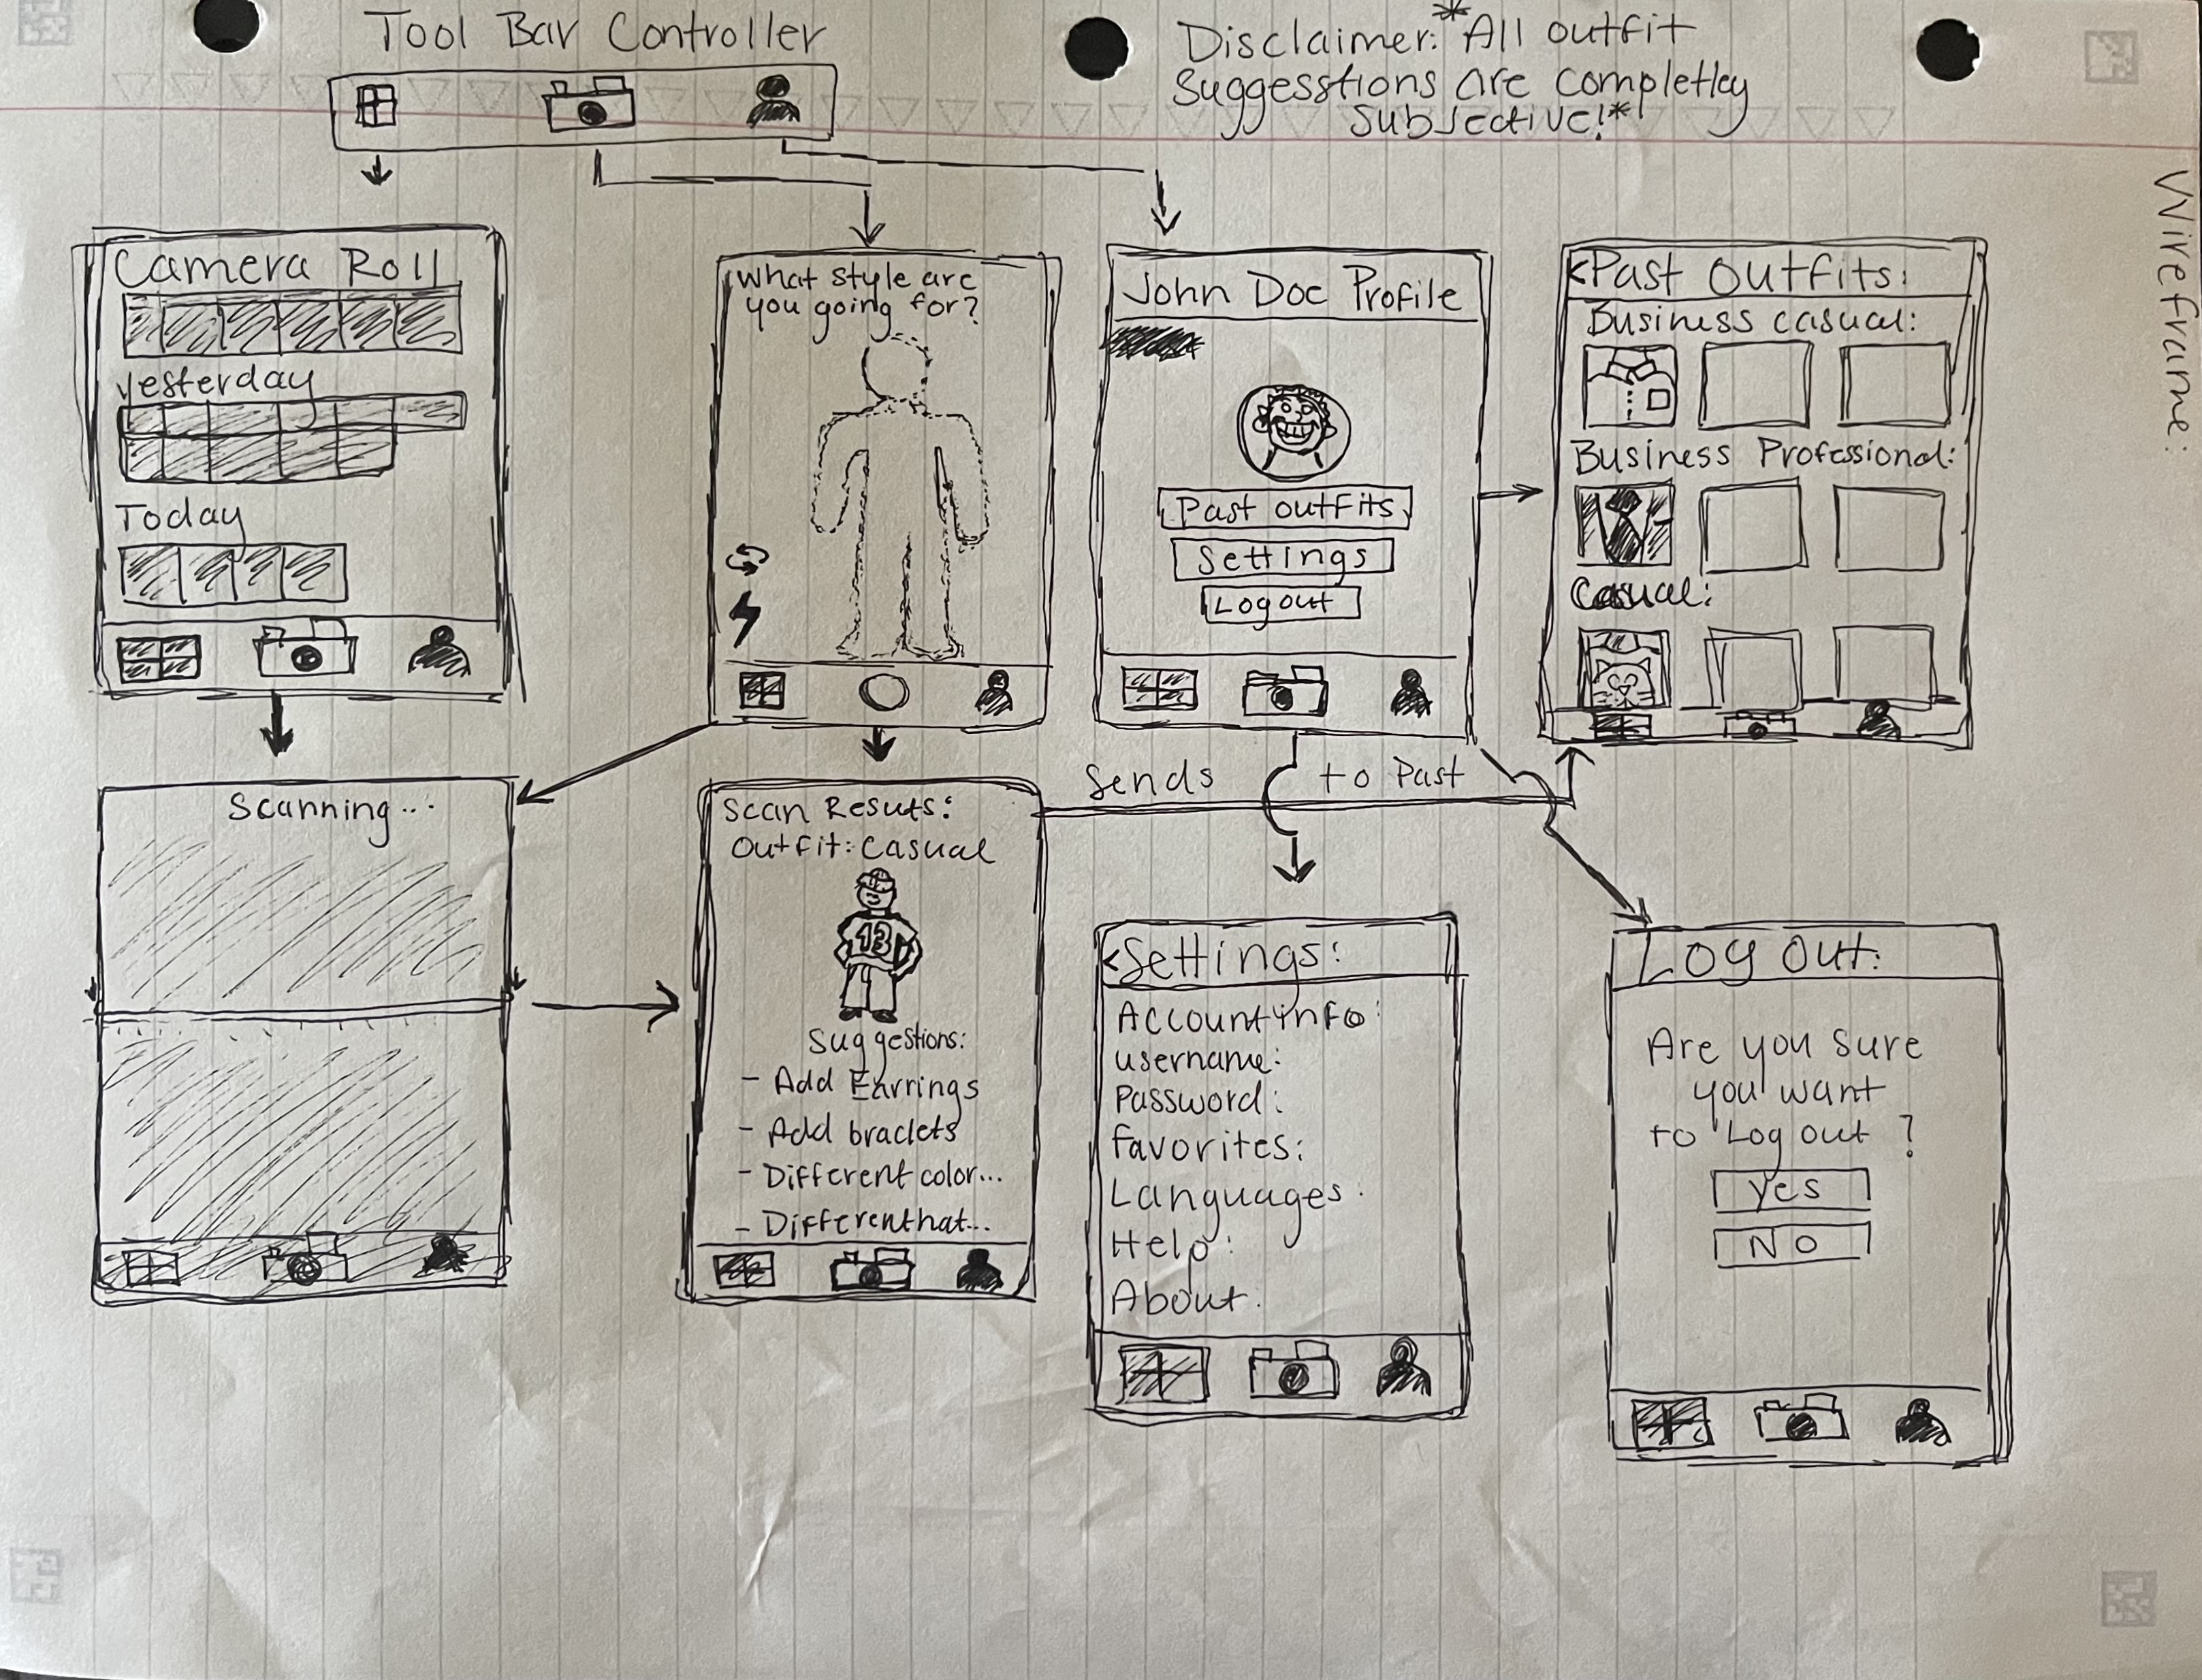 Tool Bar Controller
Disclaimer: *All outfit
Suggesstions are completley
Subjective!*
Wireframe:
Camera Roll
yesterday
Today
What style are
you going for?
John Doe Profile
Past outfits
Settings
Logout
<Past Outfits:
Business casual:
Business Professional:
Casual:
Scanning...
Scan Resuts:
Outfit: Casual
13
Suggestions:
- Add Earrings
- Add braclets
- Different color...
- Different hat...
Sends to Past
<Settings:
Account info:
username:
Password:
favorites:
Languages:
Help:
About.
Log Out:
Are you sure
you want
to Log out ?
yes
No